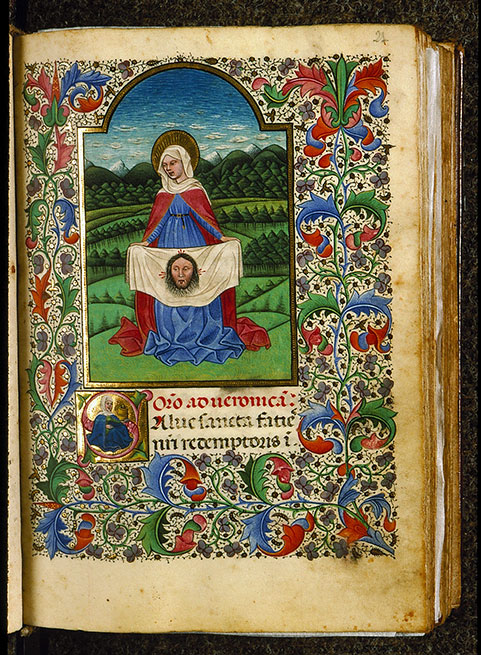 24
Oro ad ueronicā:
SAlue sancta facie
nr̄i redemptoris i